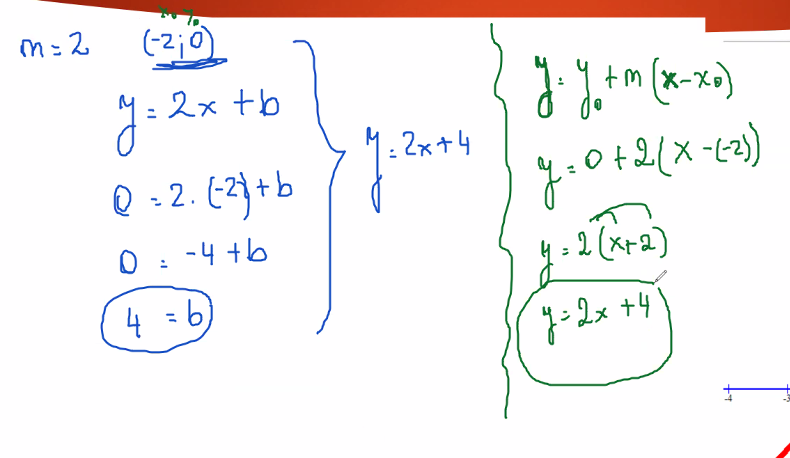 x₀ y₀
m = 2 (-2; 0)
y = 2x + b
0 = 2 · (-2) + b
0 = -4 + b
4 = b
y = 2x + 4
y = y₀ + m (x - x₀)
y = 0 + 2 (x - (-2))
y = 2 (x + 2)
y = 2x + 4
-4 -3